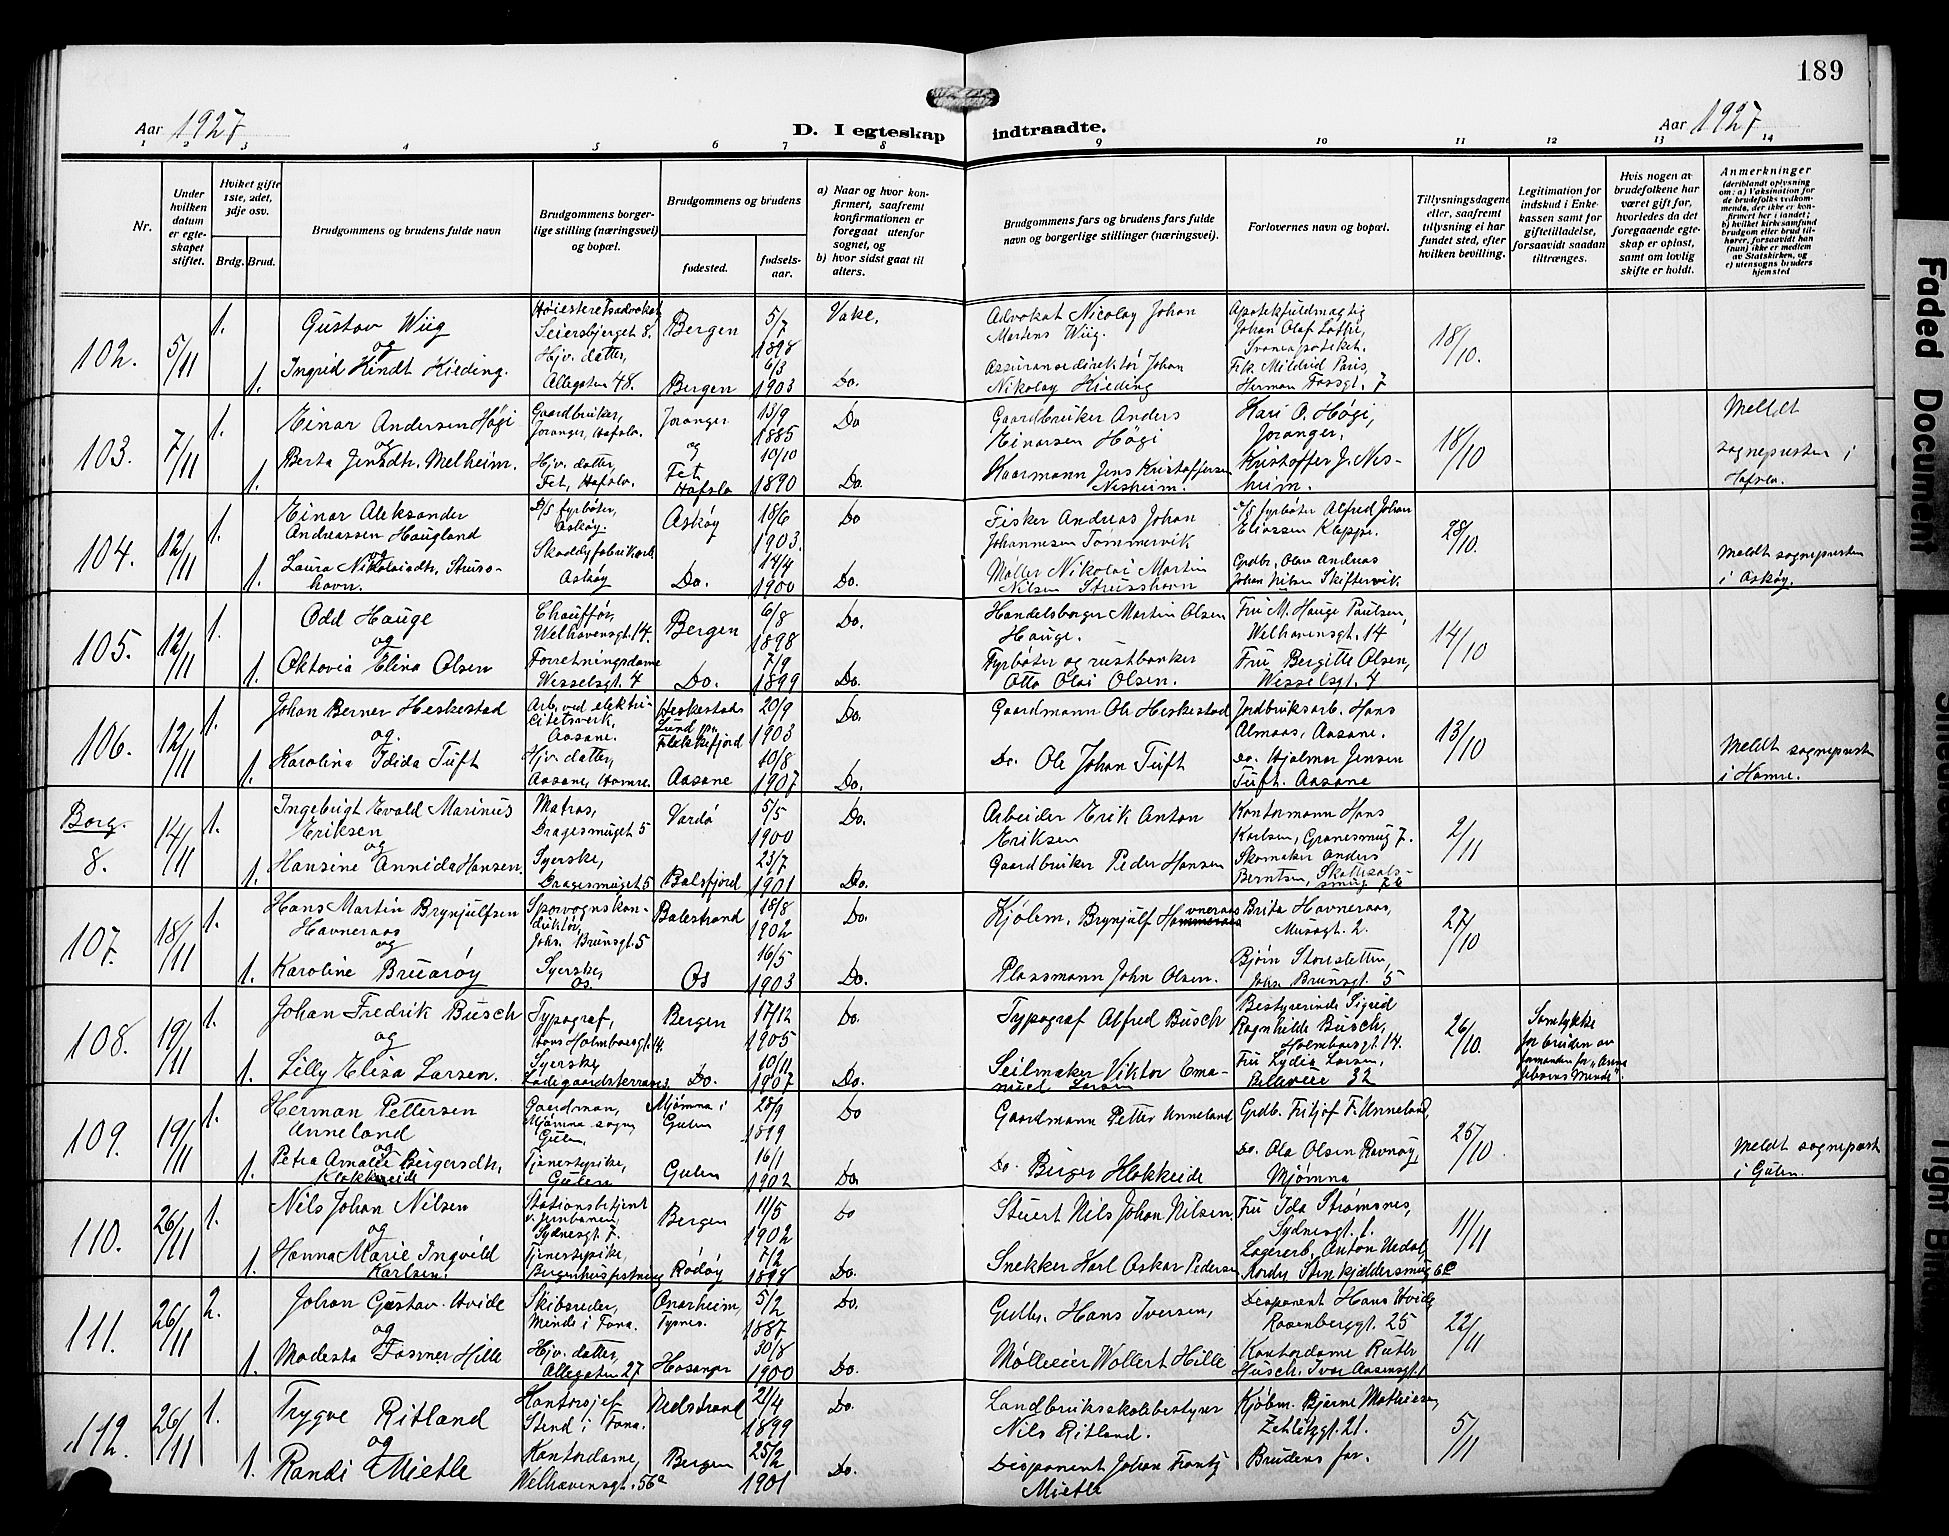 189
Aar 1927
D. I egteskap indtraadte.
Aar 1927
1 2 3 4 5 6 7 8 9 10 11 12 13 14
Nr.
Under hvilken datum er egteskapet stiftet.
Hvilket gifte 1ste, 2det, 3dje osv.
Brdg. Brud.
Brudgommens og brudens fulde navn
Brudgommens borgerlige stilling (næringsvei) og bopæl.
Brudgommens og brudens
fødested.
fødselsaar.
a) Naar og hvor konfirmert, saafremt konfirmationen er foregaat utenfor sognet, og
b) hvor sidst gaat til alters.
Brudgommens fars og brudens fars fulde navn og borgerlige stillinger (næringsvei).
Forlovernes navn og bopæl.
Tillysningsdagene eller, saafremt tillysning ei har fundet sted, efter hvilken bevilling.
Legitimation for indskud i Enkekassen samt for giftetilladelse, forsaavidt saadan tiltrænges.
Hvis nogen av brudefolkene har været gift før, hvorledes da det foregaaende egteskap er opløst, samt om lovlig skifte er holdt.
Anmerkninger
(deriblandt oplysning om: a) Vaksination for de brudefolks vedkommende, der ikke er konfirmert her i landet; b) hvilket kirkesamfund brudgom eller brud tilhører, forsaavidt han (hun) ikke er medlem av Statskirken, og c) utensogns bruders hjemsted
102. 5/11 1. Gustav Wiig Høiesteretsadvokat, Seiersbjerget 8. Bergen 5/7 1898 Vake. Advokat Nicolay Johan Martens Wiig. Apotekfuldmægtig Johan Olaf Lothe, Svaneapoteket. 18/10.
og
1. Ingrid Kindt Kieding. Hjv. datter, Allegaten 48. Bergen 6/3 1903 Do. Assurancedirektør Johan Nikolay Kieding Frk. Mildrid Paus, Herman Fossgt. 7
103. 7/11 1. Einar Andersen Høgi Gaardbruker, Joranger, Hafslo. Joranger 13/9 1885 Do Gaardbruker Anders Einarsen Høgi Kari O. Høgi, Joranger. 18/10 Meldt sognepresten i Hafslo.
og
1. Berta Jensdtr. Melheim. Hjv. datter, Fet, Hafslo. Fet, Hafslo 10/10 1890 Do. Kaarmann Jens Kristoffersen Nesheim. Kristoffer J. Nesheim.
104. 12/11 1. Einar Aleksander Andreassen Haugland D/S fyrbøter, Askøy. Askøy 18/6 1903. Do Fisker Andreas Johan Johannesen Tømmervik D/S fyrbøter Alfred Johan Eliassen Kappe. 28/10. Meldt sognepresten i Askøy.
og
1. Laura Nikolaidtr. Strusshavn. Skoddyfabrikarb. Askøy Do. 14/4 1900 Do. Møller Nikolai Martin Nilsen Strusshavn Grdbr. Olav Andreas Johan Nilsen Skiftesvik
105. 12/11 1. Odd Hauge Chauffør, Welhavensgt. 14. Bergen 6/8 1898 Do. Handelsborger Martin Olsen Hauge. Fru M. Hauge Paulsen, Welhavensgt. 14 14/10
og
1. Oktovia Elina Olsen Forretningsdame Wesselsgt. 4 Do. 7/9 1899 Do. Fyrbøter og rustbanker Otto Olai Olsen. Fru Bergitte Olsen, Wesselsgt. 4
106. 12/11 1. Johan Berner Heskestad Arb. ved elektricitetsverk, Aasane. Heskestad Lund pr. Flekkefjord 20/9 1903 Do. Gaardmann Ole Heskestad Jordbruksarb. Hans Almaas, Aasane. 13/10
og
1. Karolina Idida Tuft Hjv. datter, Aasane, Hamre. Aasane 10/8 1907 Do. Do. Ole Johan Tuft Do. Hjalmar Jensen Tuft. Aasane Meldt sognepresten i Hamre.
Borg. 8. 14/11 1. Ingebrigt Evald Marinus Eriksen Matros, Dragesmuget 5 Vardø 5/5 1900 Do. Arbeider Erik Anton Eriksen Kontormann Hans Karlsen, Granesmug 7. 2/11
og
1. Hansine Annida Hansen. Syerske, Dragesmuget 5 Balsfjord 23/7 1901 Do. Gaardbruker Peder Hansen Skomaker Anders Berntsen,
107. 18/11 1. Hans Martin Brynjulfsen Havneraas Sporvognskonduktør, Johs. Brunsgt. 5 Balestrand 18/8 1902 Do. Kjølem. Brynjulf Havneraas Brita Havneraas, Museegt. 2. 27/10
og
1. Karoline Bruarøy Syerske, Os. Os 16/5 1903 Do. Plassmann John Olsen. Bjørn Storesletten, Johs. Brunsgt. 5
108. 19/11 1. Johan Fredrik Busch Typograf, Hans Holmboesgt. 14. Bergen 17/12 1905 Do. Typograf Alfred Busch Bestyrerinde Sigrid Ragnhilde Busch, Holmboesgt. 14. 26/10. Samtykke for bruden av formanden for "Anna Jebsens Minde".
og
1. Lilly Elisa Larsen. Syerske Ladegaardsterrasse. Do. 10/11 1907 Do. Seilmaker Viktor Emanuel Larsen Fru Lydia Larsen, Bellevue 32
109. 19/11 1. Herman Pettersen Anneland Gaardman, Mjømna sogn, Gulen. Mjømna i Gulen 28/9 1899 Do Gaardmann Petter Anneland Grdb. Fritjof F. Anneland, 25/10. Meldt sognepræst i Gulen.
og
1. Petra Amalie Birgersdtr. Klokkereide Tjenestepike, Gulen Gulen 16/1 1902 Do. Do. Birger Klokkeide Do. Ola Olsen Ravnøy, Mjømna
110. 26/11 1. Nils Johan Nilsen Stationsbetjent v. jernbanen, Sydnesgt. 7. Bergen 11/5 1902 Do Stuert Nils Johan Nilsen. Fru Ida Strømsnes, Sydnesgt. 1. 11/11
og
1. Hanna Marie Ingvild Karlsen. Tjenestepike, Bergenhus festning Rødøy 7/2 1898 Do. Snekker Karl Oskar Pedersen Lagerarb. Anton Nedal,
111. 26/11 2. Johan Gustav Hvide Skibsreder, Minde i Fana. Onarheim, Tysnes. 5/2 1887 Do. Gulbr. Hans Iversen, Disponent Hans Hvide Rosenberggt. 25 22/11
og
1. Modesta Fasmer Hille Hjv. datter, Allegaten 27 Hosanger 30/8 1900 Do. Mølleeier Wollert Hille Kontordame Ruth Husch, Ivar Aasensgt. 1
112. 26/11 1. Trygve Ritland Kontorsjef Stend i Fana. Nedstrand 21/4 1899 Do. Landbruksskolebestyrer Nils Ritland. Kjøbm. Bjarne Mathiesen, Zetlitzgt. 21. 5/11
og
1. Randi Mietle Kontordame, Welhavensgt. 56a Bergen 25/2 1901 Do. Disponent Johan Frantz Mietle Brudens far.
Faded Document
Tight Bind